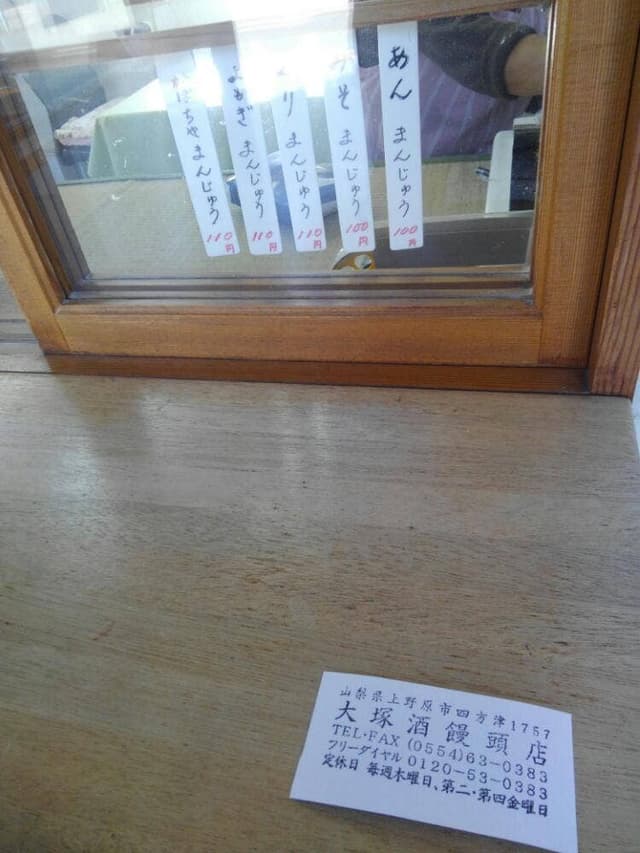 あん まんじゅう 100円
みそ まんじゅう 100円
り まんじゅう 110円
よもぎ まんじゅう 110円
かぼちゃ まんじゅう 110円
山梨県上野原市四方津1757
大塚酒饅頭店
TEL・FAX (0554)63-0383
フリーダイヤル 0120-53-0383
定休日 毎週木曜日、第二・第四金曜日